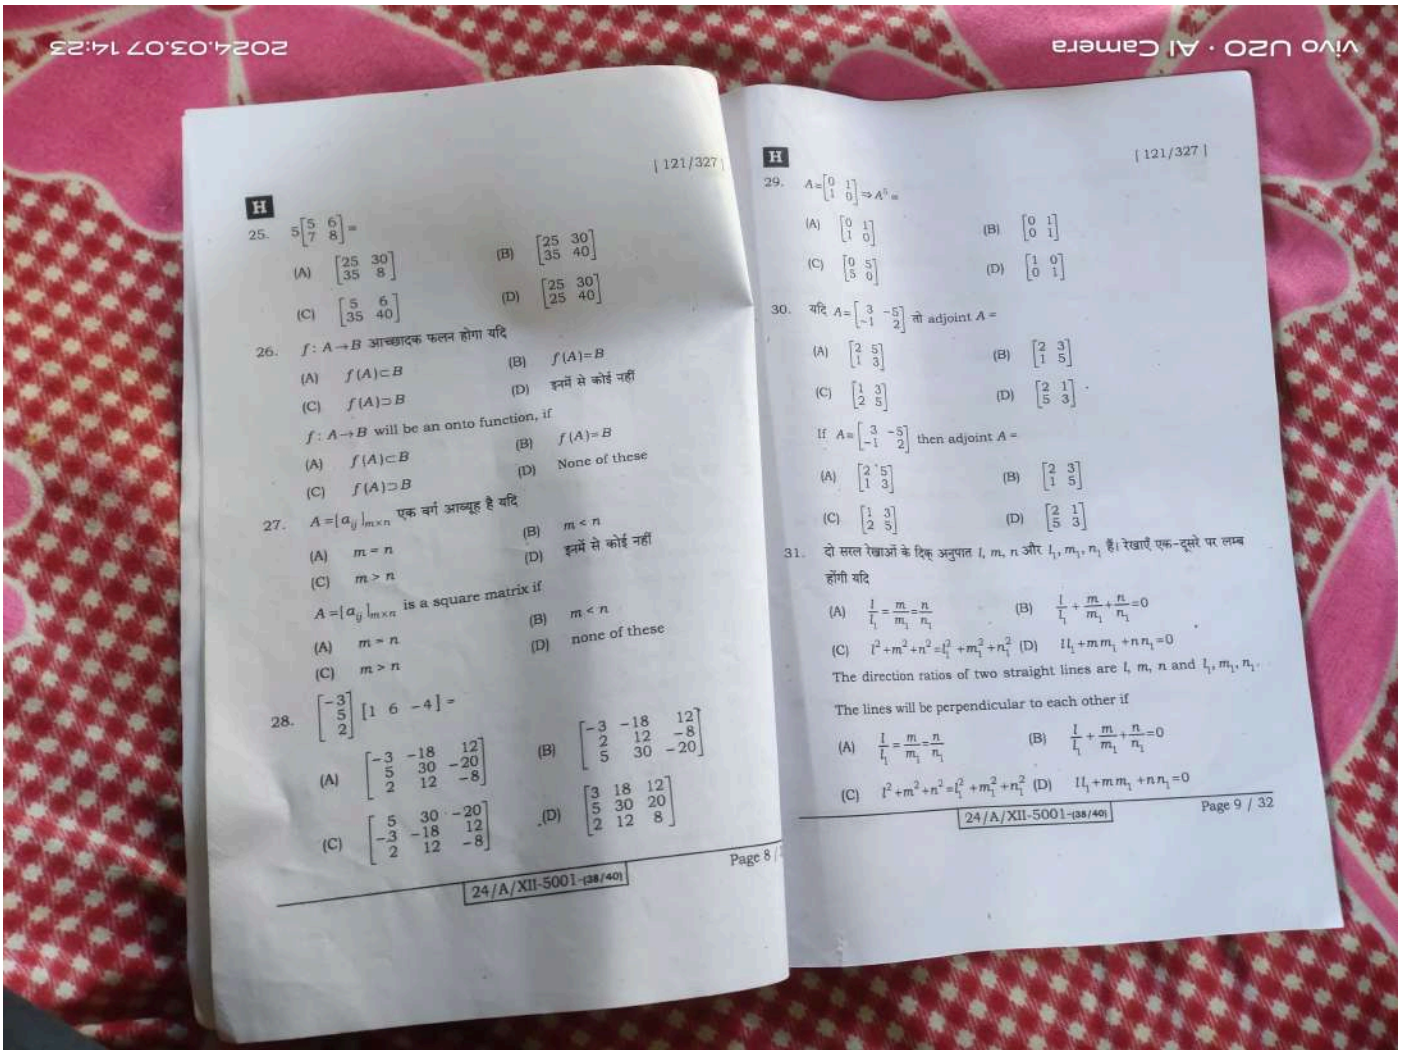 2024.03.07 14:23
vivo U20 · AI Camera
| 121/327 |
H
25. 5[5 6; 7 8]=
(A) [25 30; 35 8] (B) [25 30; 35 40]
(C) [5 6; 35 40] (D) [25 30; 25 40]
26. f : A→B आच्छादक फलन होगा यदि
(A) f(A)⊂B (B) f(A)=B
(C) f(A)⊃B (D) इनमें से कोई नहीं
f : A→B will be an onto function, if
(A) f(A)⊂B (B) f(A)=B
(C) f(A)⊃B (D) None of these
27. A=[a_ij]_m×n एक वर्ग आव्यूह है यदि
(A) m = n (B) m < n
(C) m > n (D) इनमें से कोई नहीं
A=[a_ij]_m×n is a square matrix if
(A) m = n (B) m < n
(C) m > n (D) none of these
28. [-3; 5; 2] [1 6 -4] =
(A) [-3 -18 12; 5 30 -20; 2 12 -8] (B) [-3 -18 12; 2 12 -8; 5 30 -20]
(C) [5 30 -20; -3 -18 12; 2 12 -8] (D) [3 18 12; 5 30 20; 2 12 8]
24/A/XII-5001-(38/40) Page 8 /
H | 121/327 |
29. A=[0 1; 1 0] ⇒ A⁵ =
(A) [0 1; 1 0] (B) [0 1; 0 1]
(C) [0 5; 5 0] (D) [1 0; 0 1]
30. यदि A=[3 -5; -1 2] तो adjoint A =
(A) [2 5; 1 3] (B) [2 3; 1 5]
(C) [1 3; 2 5] (D) [2 1; 5 3]
If A=[3 -5; -1 2] then adjoint A =
(A) [2 5; 1 3] (B) [2 3; 1 5]
(C) [1 3; 2 5] (D) [2 1; 5 3]
31. दो सरल रेखाओं के दिक् अनुपात l, m, n और l₁, m₁, n₁ हैं। रेखाएँ एक-दूसरे पर लम्ब
होंगी यदि
(A) l/l₁ = m/m₁ = n/n₁ (B) l/l₁ + m/m₁ + n/n₁ = 0
(C) l²+m²+n²=l₁²+m₁²+n₁² (D) ll₁+mm₁+nn₁=0
The direction ratios of two straight lines are l, m, n and l₁, m₁, n₁.
The lines will be perpendicular to each other if
(A) l/l₁ = m/m₁ = n/n₁ (B) l/l₁ + m/m₁ + n/n₁ = 0
(C) l²+m²+n²=l₁²+m₁²+n₁² (D) ll₁+mm₁+nn₁=0
24/A/XII-5001-(38/40) Page 9 / 32